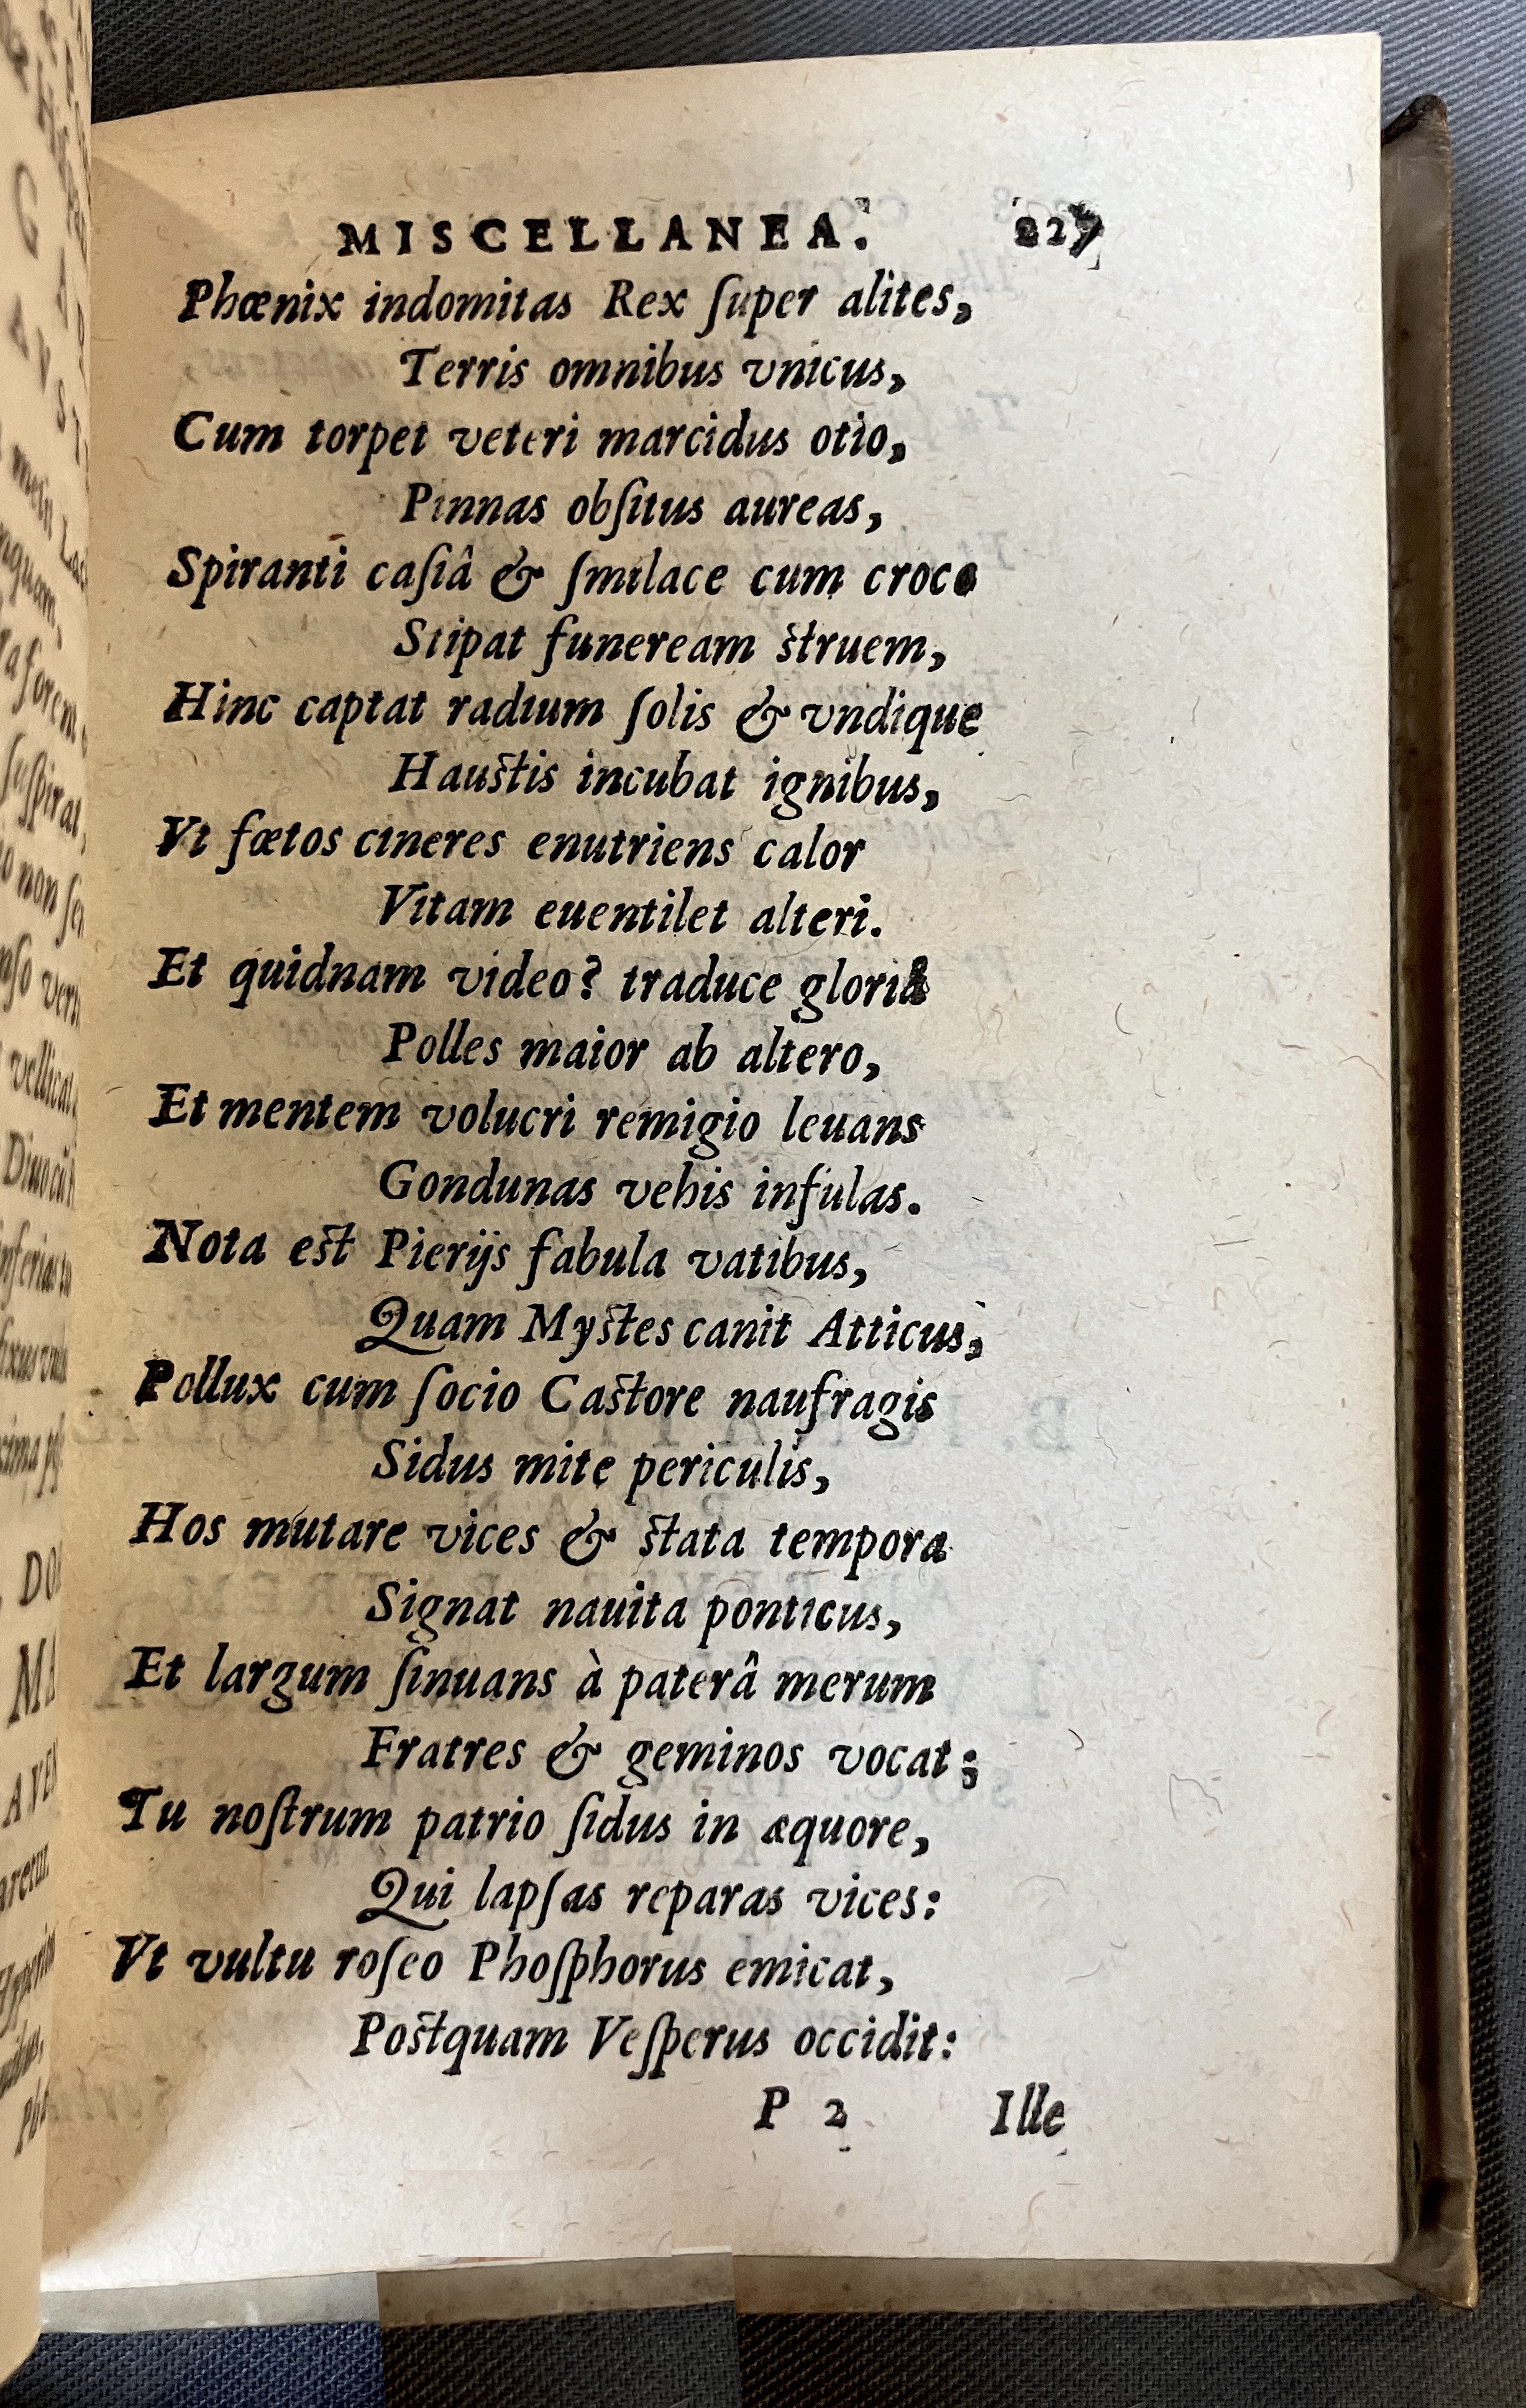 MISCELLANEA. 227
Phœnix indomitas Rex ſuper alites,
Terris omnibus vnicus,
Cum torpet veteri marcidus otio,
Pinnas obſitus aureas,
Spiranti caſiâ & ſmilace cum croco
Stipat funeream ſtruem,
Hinc captat radium ſolis & vndique
Hauſtis incubat ignibus,
Vt fœtos cineres enutriens calor
Vitam euentilet alteri.
Et quidnam video? traduce gloriâ
Polles maior ab altero,
Et mentem volucri remigio leuans
Gondunas vehis infulas.
Nota eſt Pierijs fabula vatibus,
Quam Myſtes canit Atticus,
Pollux cum ſocio Caſtore naufragis
Sidus mite periculis,
Hos mutare vices & ſtata tempora
Signat nauita ponticus,
Et largum ſinuans à paterâ merum
Fratres & geminos vocat;
Tu noſtrum patrio ſidus in æquore,
Qui lapſas reparas vices:
Vt vultu roſeo Phoſphorus emicat,
Poſtquam Veſperus occidit:
P 2 Ille